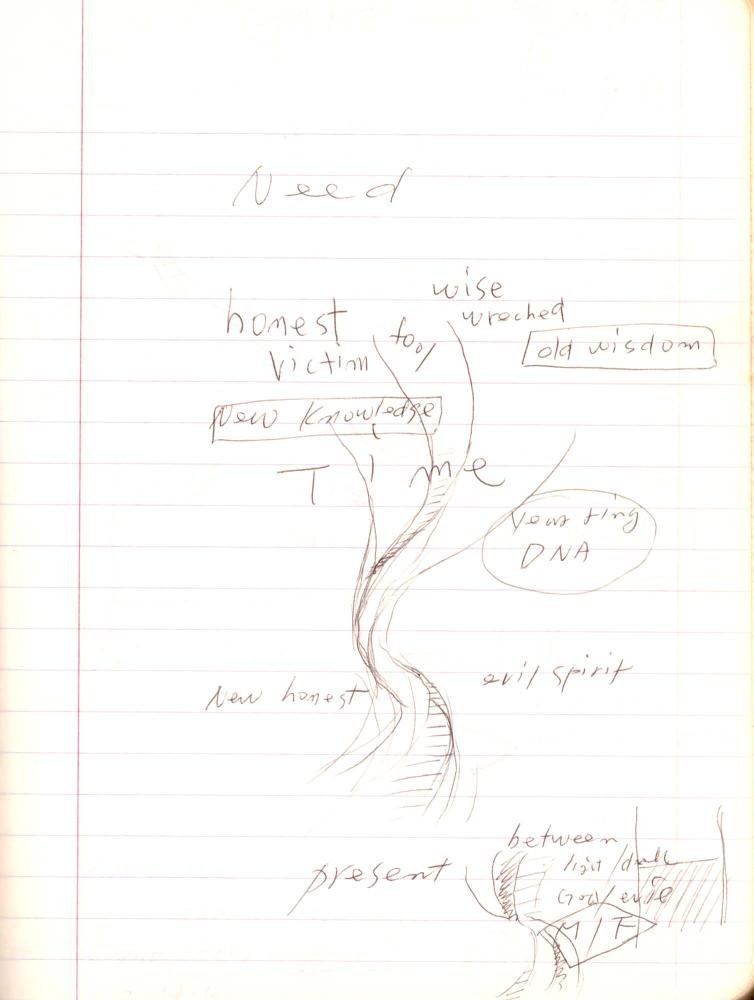 Need
wise
honest
wreched
too/
victim
old wisdom
New Knowledge
Time
ring
DNA
evil spirit
New honest
between
light/dark
present
God/evil
M/F